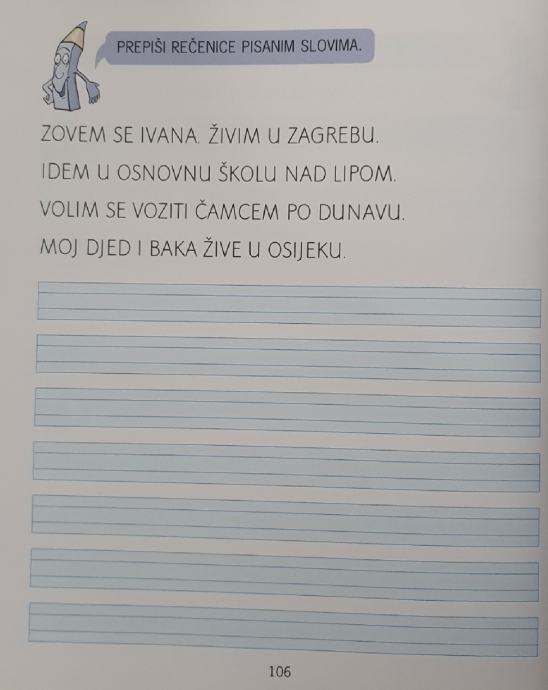 PREPIŠI REČENICE PISANIM SLOVIMA.
ZOVEM SE IVANA. ŽIVIM U ZAGREBU.
IDEM U OSNOVNU ŠKOLU NAD LIPOM.
VOLIM SE VOZITI ČAMCEM PO DUNAVU.
MOJ DJED I BAKA ŽIVE U OSIJEKU.
106